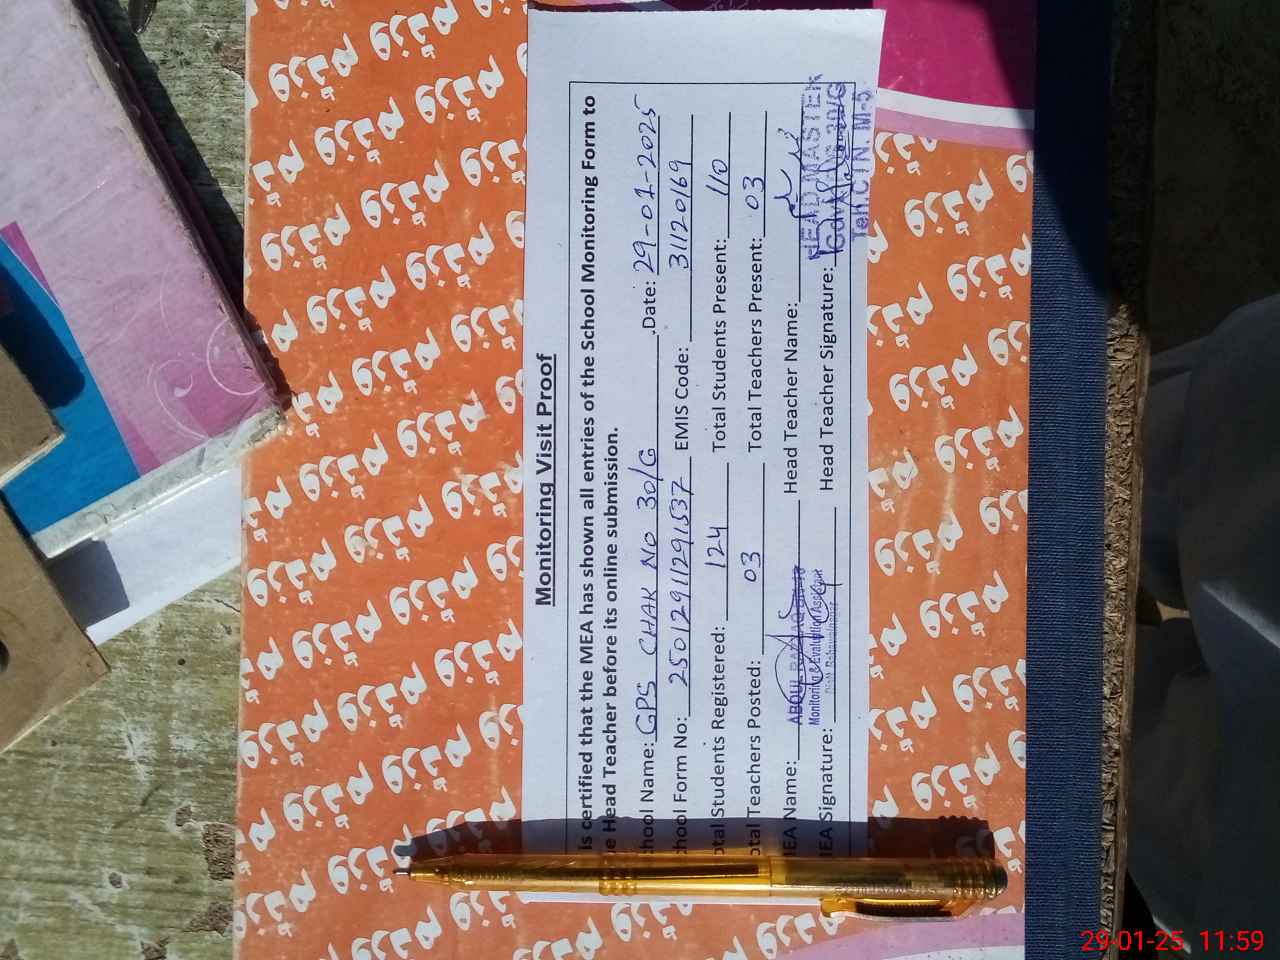 Monitoring Visit Proof
is certified that the MEA has shown all entries of the School Monitoring Form to
e Head Teacher before its online submission.
chool Name: GPS CHAK NO 30/G .Date: 29-01-2025
chool Form No: 25012911291537 EMIS Code: 31120169
otal Students Registered: 124 Total Students Present: 110
otal Teachers Posted: 03 Total Teachers Present: 03
MEA Name: ABDUL RAZZAQ Head Teacher Name:
Monitoring & Evaluation Assistant
MEA Signature: Head Teacher Signature:
HEADMASTER
30/G
Teh.CTN. M-5
29-01-25 11:59